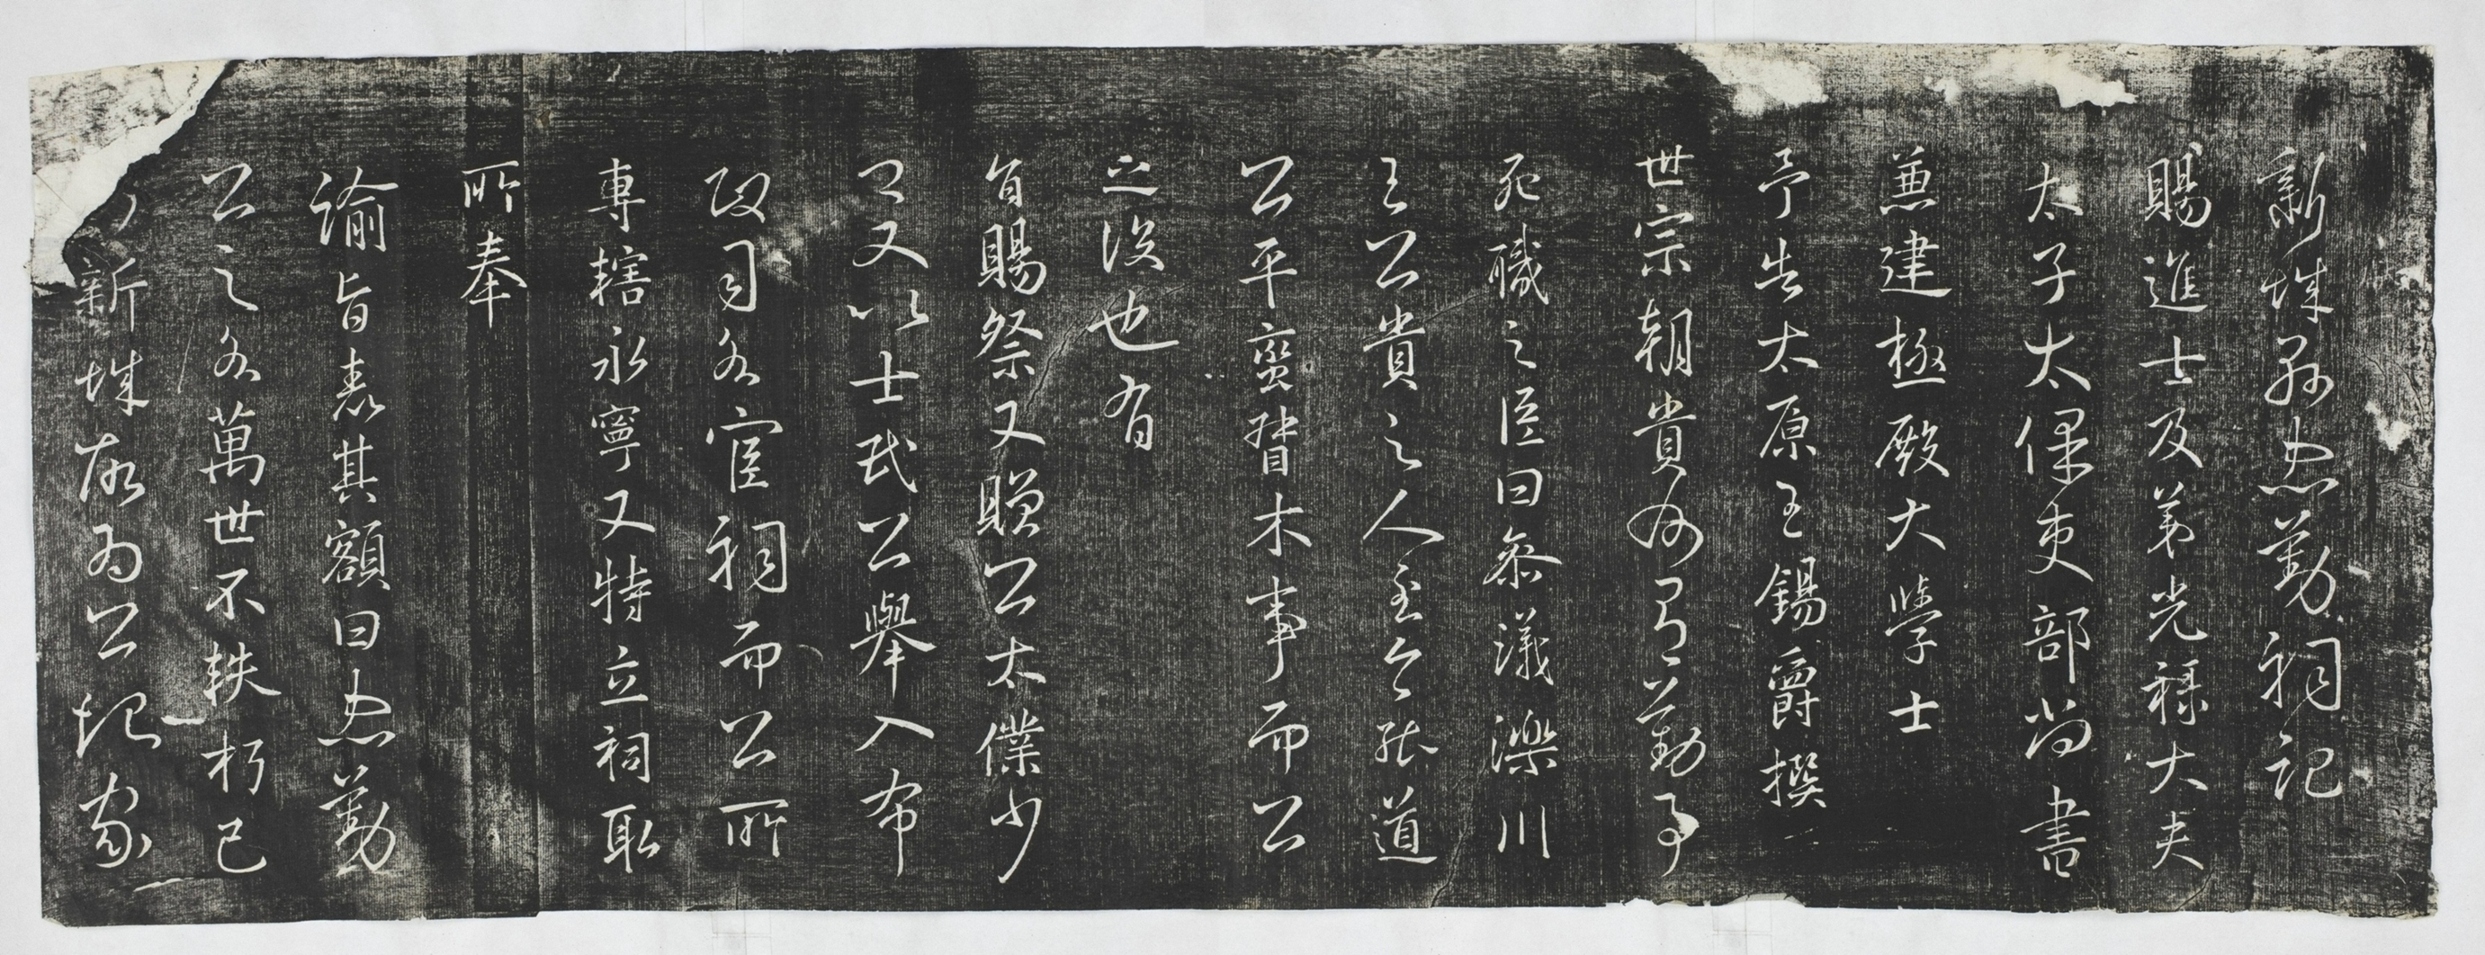 新城縣忠勤祠記
賜進士及第光祿大夫
太子太保吏部尚書
兼建極殿大學士
予告太原王錫爵撰
世宗朝貴州有以勤事
死職之臣曰叅議濼川
王公貴之人至今能道
公平蠻督木事而公
之沒也有
旨賜祭又贈公太僕少
已又以士民公舉入布
政司名宦祠而公所
專轄永寧又特立祠取
所奉
諭旨表其額曰忠勤
公之名萬世不軼朽已
新城故為公起家